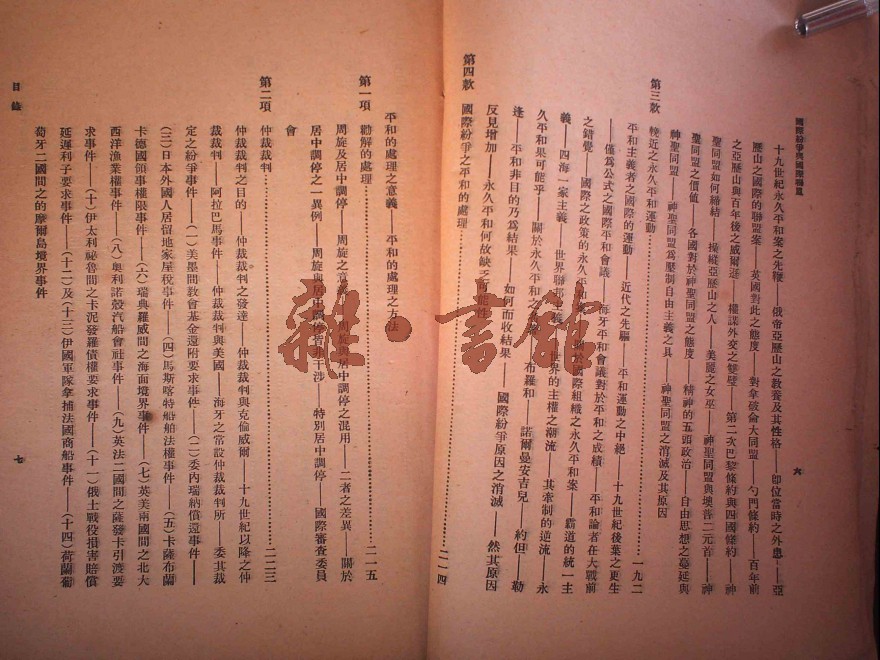 國際紛爭與國際聯盟
六
十九世紀永久平和案之先鞭——俄帝亞歷山之教養及其性格——卽位當時之外患——亞
歷山之國際的聯盟案——英國對此之態度——對拿破侖大同盟——勺門條約——百年前
之亞歷山與百年後之威爾遜——權謀外交之雙璧——第二次巴黎條約與四國條約——神
聖同盟如何締結——操縱亞歷山之人——美麗之女巫——神聖同盟與墺普二元首——神
聖同盟之價値——各國對於神聖同盟之態度——精神的五頭政治——自由思想之蔓延與
神聖同盟——神聖同盟爲壓制自由主義之具——神聖同盟之消滅及其原因
第三款 輓近之永久平和運動 一九二
平和主義者之國際的運動——近代之先驅——平和運動之中絕——十九世紀後葉之更生
——僅爲公式之國際平和會議——海牙平和會議對於平和之成績——平和論者在大戰前
之錯覺——國際之政策的永久平和案——關於國際組織之永久平和案——霸道的統一主
義——四海一家主義——世界聯邦主義——世界的主權之潮流——其牽制的逆流——永
久平和果可能乎——關於永久平和之 布羅和——諾爾曼安吉兒——約但——勒
逢——平和非目的乃爲結果——如何而收結果——國際紛爭原因之消滅——然其原因
反見增加——永久平和何故缺乏可能性
第四款 國際紛爭之平和的處理 二一四
平和的處理之意義——平和的處理之方法
第一項 勸解的處理 二一五
周旋及居中調停——周旋之意義——周旋與居中調停之混用——二者之差異——關於
居中調停之一異例——周旋與居中調停皆非干涉——特別居中調停——國際審查委員
會
第二項 仲裁裁判 二二三
仲裁裁判之目的——仲裁裁判之發達——仲裁裁判與克倫威爾——十九世紀以降之仲
裁裁判——阿拉巴馬事件——仲裁裁判與美國——海牙之常設仲裁裁判所——委其裁
定之紛爭事件——(一)美墨間敎會基金還附要求事件——(二)委內瑞納償還事件——
(三)日本外國人居留地家屋稅事件——(四)馬斯喀特船舶法權事件——(五)卡薩布蘭
卡德國領事權限事件——(六)瑞典羅威間之海面境界事件——(七)英美兩國間之北大
西洋漁業權事件——(八)奧利諾殼汽船會社事件——(九)英法二國間之薩發卡引渡要
求事件——(十)伊太利祕魯間之卡泥發羅債權要求事件——(十一)俄土戰役損害賠償
延遲利子要求事件——(十二)及(十三)伊國軍隊拿捕法國商船事件——(十四)荷蘭葡
萄牙二國間之的摩爾島境界事件
目錄
七
雜·書館